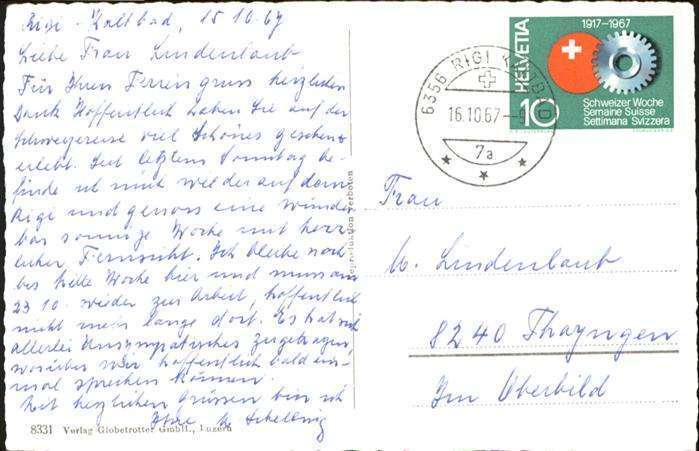 Rigi-Kaltbad, 15.10.67
Liebe Frau Lindenlaub
Für Ihren Feriengruss herzlichen
Dank Hoffentlich haben Sie auf der
Schweizreise viel Schönes gesehen &
erlebt. Seit letztem Sonntag be-
finde ich mich wieder auf dem
Rigi und genoss eine wunder
bar sonnige Woche mit herr
licher Fernsicht. Ich bleibe noch
bis Mitte Woche hier und muss am
23 10. wieder zur Arbeit, hoffentlich
nicht mehr lange dort. Es hat sich
allerlei Unsympatisches zugetragen,
worüber wir hoffentlich bald ein-
mal sprechen können.
Mit herzlichen Grüssen bin ich
Ihre Schelling
8331 Verlag Globetrotter GmbH., Luzern
Reproduktion verboten
6356 RIGI KALTBAD
16.10.67
7a
1917-1967
HELVETIA
10
Schweizer Woche
Semaine Suisse
Settimana Svizzera
Frau
Lindenlaub
8240 Thayngen
Im Oberbild